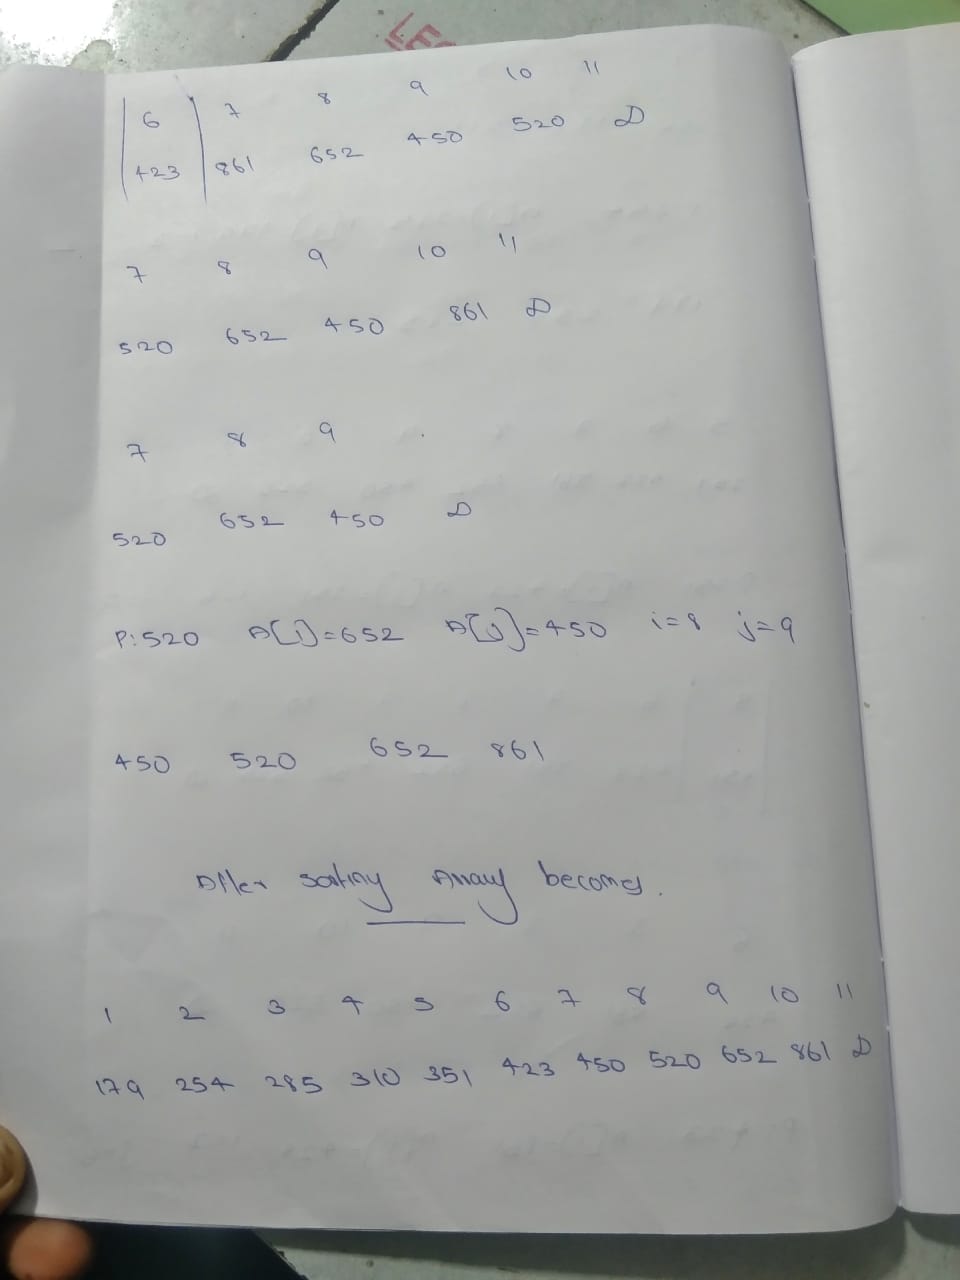 LEC
6 7 8 9 10 11
423 861 652 450 520 D
7 8 9 10 11
520 652 450 861 D
7 8 9
520 652 450 D
P:520 A[i]=652 A[j]=450 i=8 j=9
450 520 652 861
After sorting Array becomes.
1 2 3 4 5 6 7 8 9 10 11
179 254 285 310 351 423 450 520 652 861 D